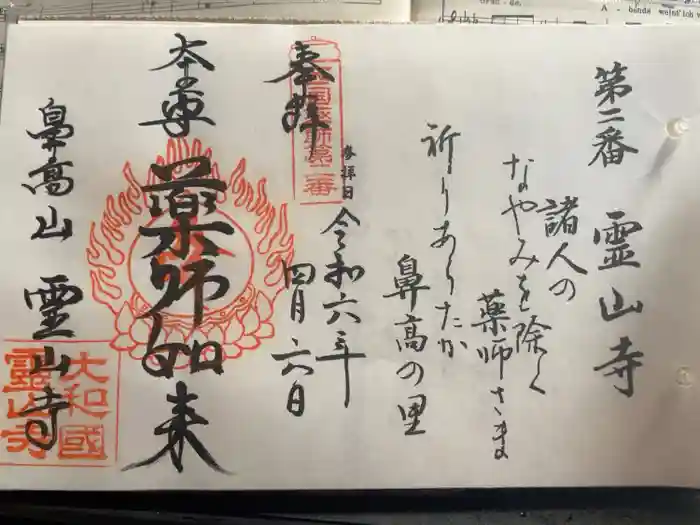 第二番 霊山寺
諸人の
なやみを除く
薬師さま
祈りあらたか
鼻高の里
奉拝
西国薬師第二番
参拝日
令和六年
四月六日
本尊 薬師如来
鼻高山 霊山寺
大和國
靈山寺